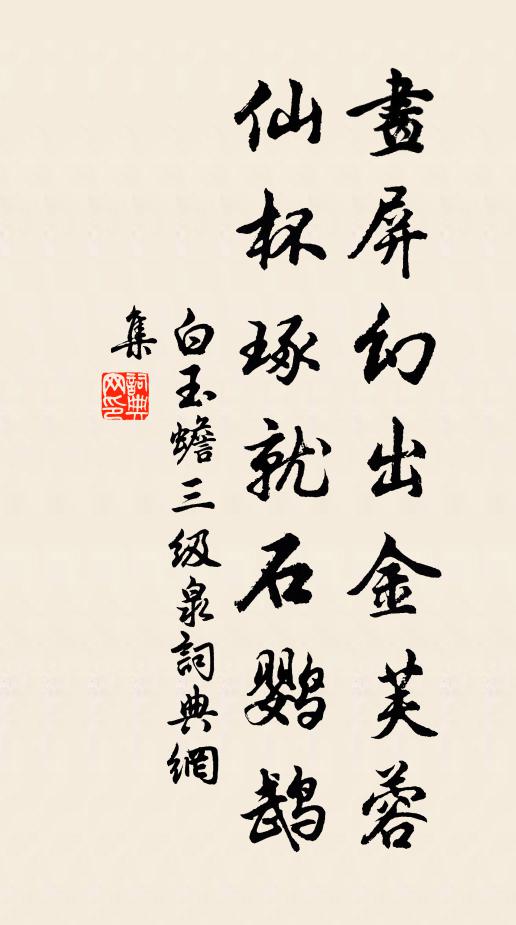 畫屏幻出金芙蓉
仙杯琢就石鸚鵡
白玉蟾三级泉詞典網
集
詞典
网印